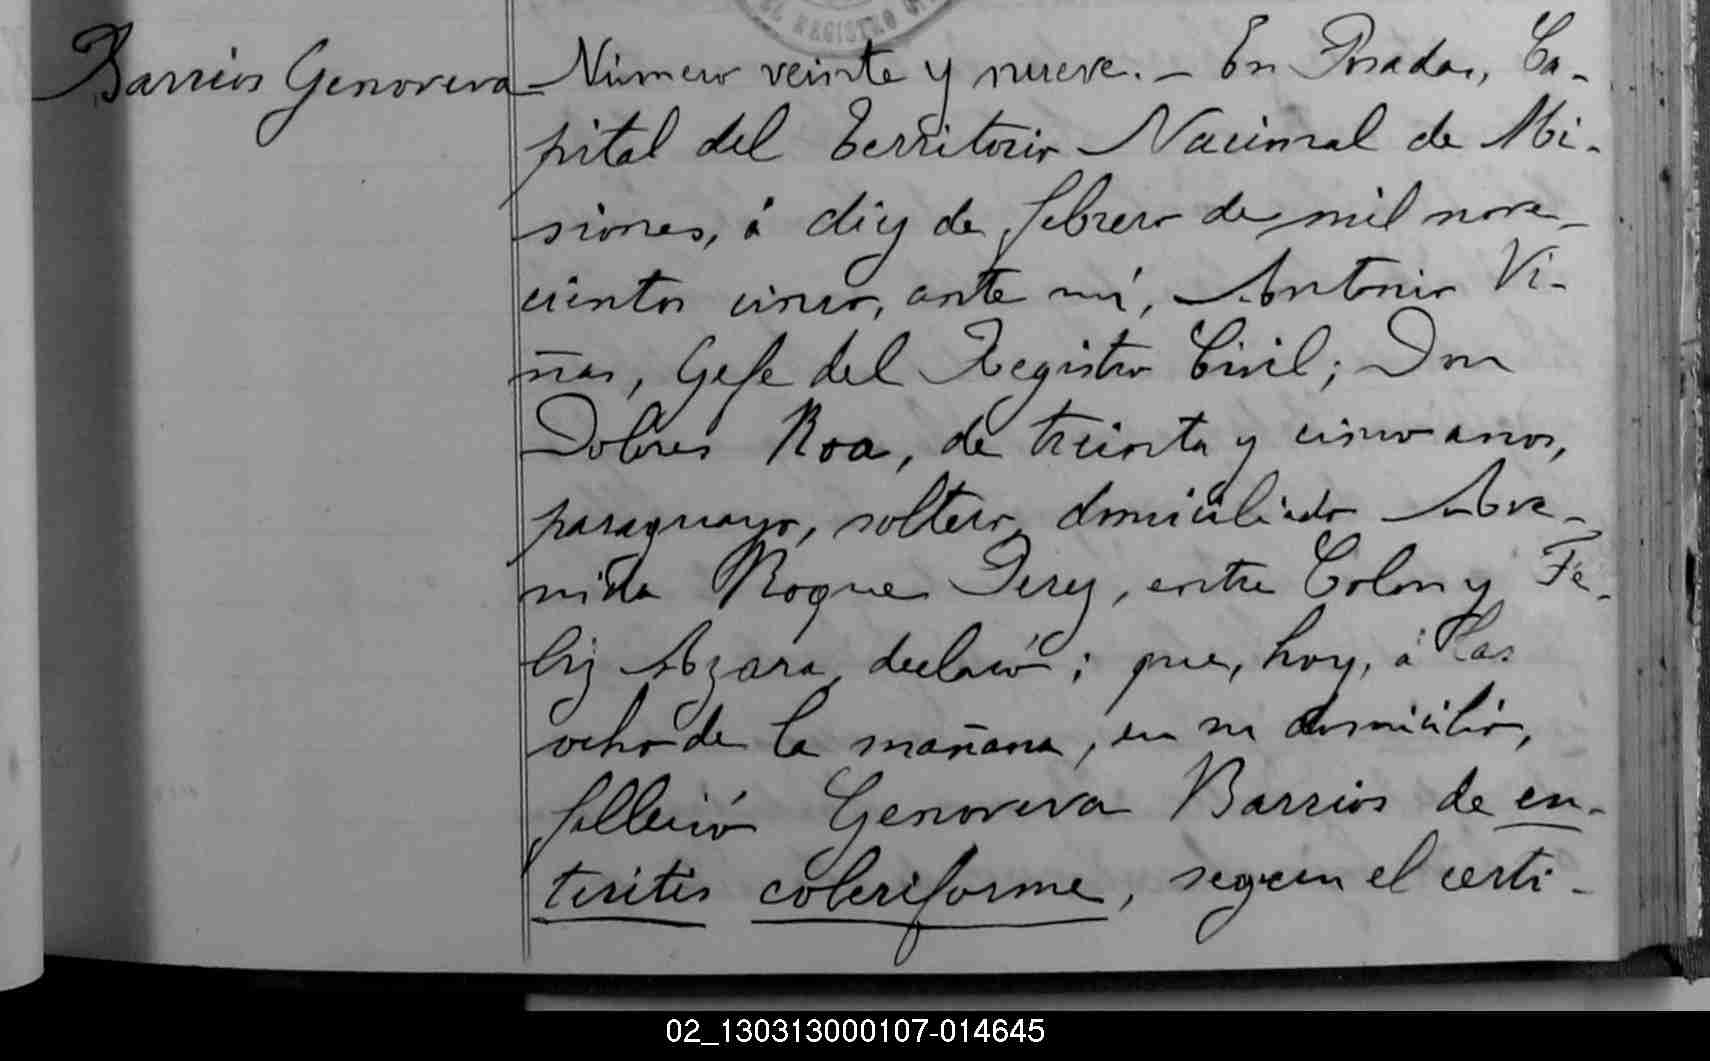 EL REGISTRO CI
Barrios Genoveva
Número veinte y nueve. — En Posadas, Ca-
pital del Territorio Nacional de Mi-
siones, á diez de febrero de mil nove-
cientos cinco, ante mí, Antonio Vi-
ñas, Gefe del Registro Civil; Don
Dolores Roa, de treinta y cinco anos,
paraguayo, soltero, domiciliado Ave-
nida Roque Perez, entre Colon y Fe-
liz Azara, declaró; que, hoy, á las
ocho de la mañana, en su domicilio,
falleció Genoveva Barrios de en-
teritis coleriforme, segun el certi-
02_130313000107-014645